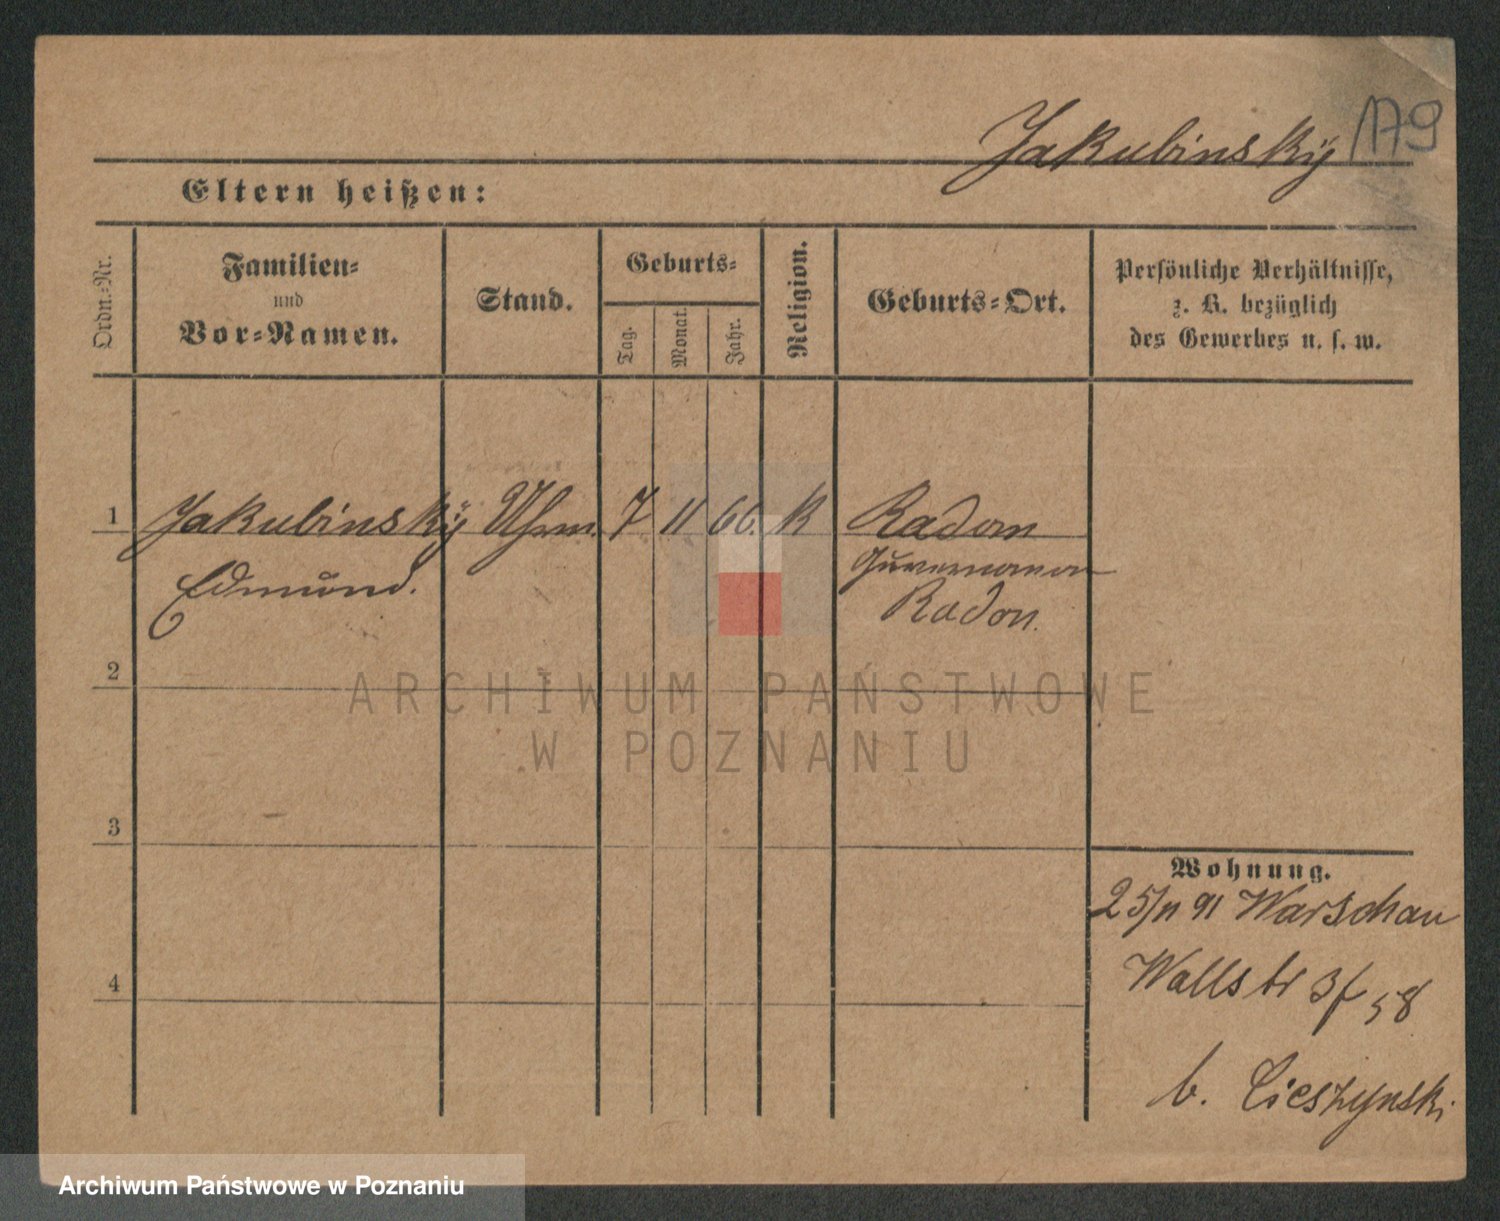 Jakubinsky 179
Eltern heißen:
Ordn.-Nr.
Familien-
und
Vor-Namen.
Stand.
Geburts-
Tag.
Monat.
Jahr.
Religion.
Geburts-Ort.
Persönliche Verhältnisse,
z. B. bezüglich
des Gewerbes u. s. w.
1 Jakubinsky Uhrm. 7 11 60. K Radom
Edmund. Guvernemen
Radon.
2
3
4
Wohnung.
25/11 91 Warschau
Wallstr 3/ 58
b. Cieszynski
ARCHIWUM PAŃSTWOWE
W POZNANIU
Archiwum Państwowe w Poznaniu